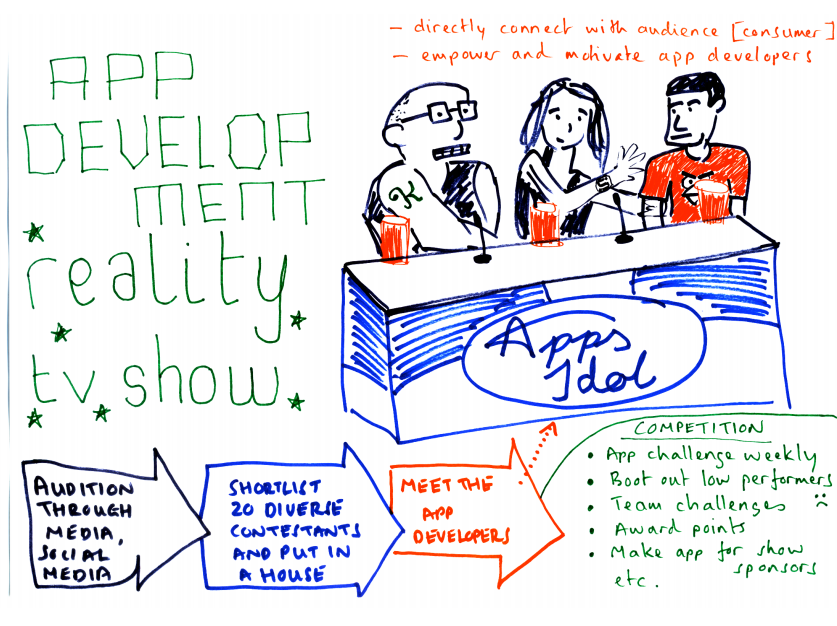 - directly connect with audience [consumer]
- empower and motivate app developers
APP
DEVELOP
MENT
reality
tv show.
K
Apps
Idol
AUDITION
THROUGH
MEDIA,
SOCIAL
MEDIA
SHORTLIST
20 DIVERSE
CONTESTANTS
AND PUT IN
A HOUSE
MEET THE
APP
DEVELOPERS
COMPETITION
• App challenge weekly
• Boot out low performers
• Team challenges
• Award points
• Make app for show
sponsors
etc.